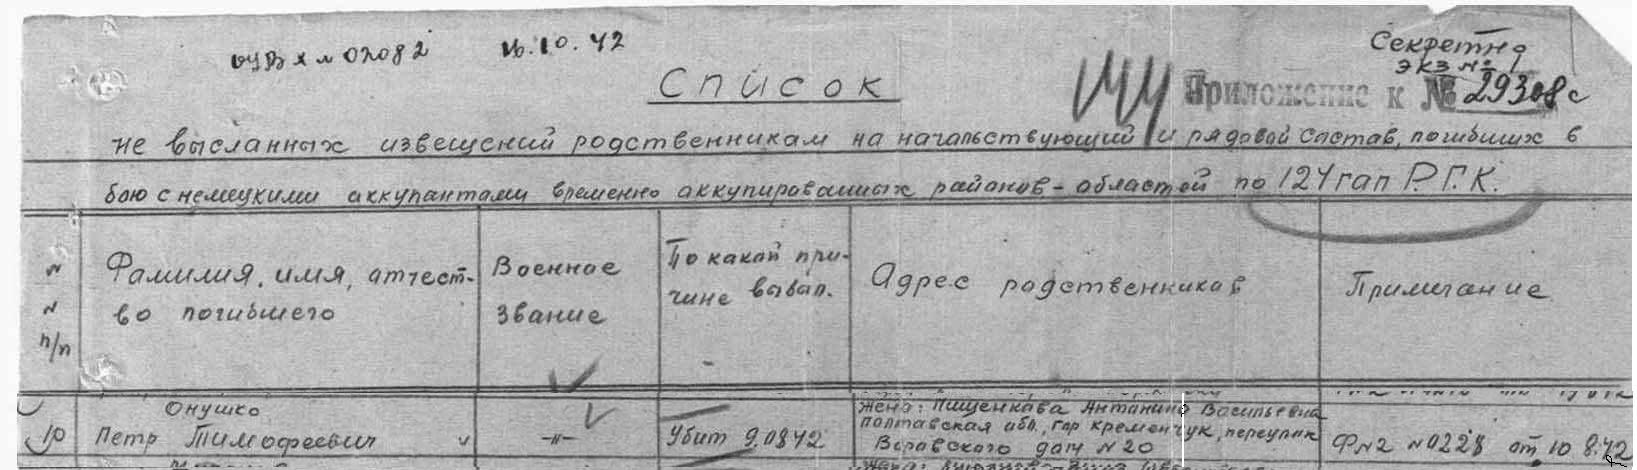 № 02082 16.10.42
Секретно
экз № 1
Список
Приложение к № 29308с
не высланных извещений родственникам на начальствующий и рядовой состав, погибших в
бою с немецкими аккупантами временно аккупированных районов-областей по 124 гап Р.Г.К.
N N п/п
Фамилия, имя, отчест-
во погибшего
Военное
звание
По какой при-
чине выбыл.
Адрес родственников
Примечание
10
Онушко
Петр Тимофеевич
-"-
Убит 9.08.42
Жена: Пищенкова Антанина Васильевна
Полтавская обл., гор Кременчук, переулак
дом N 20
Ф N2 N0228 от 10.8.42